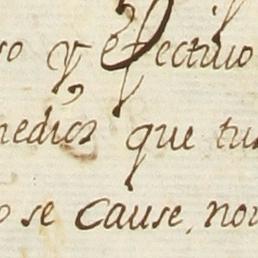 so y efectivo
medios que tu
o se cause, no